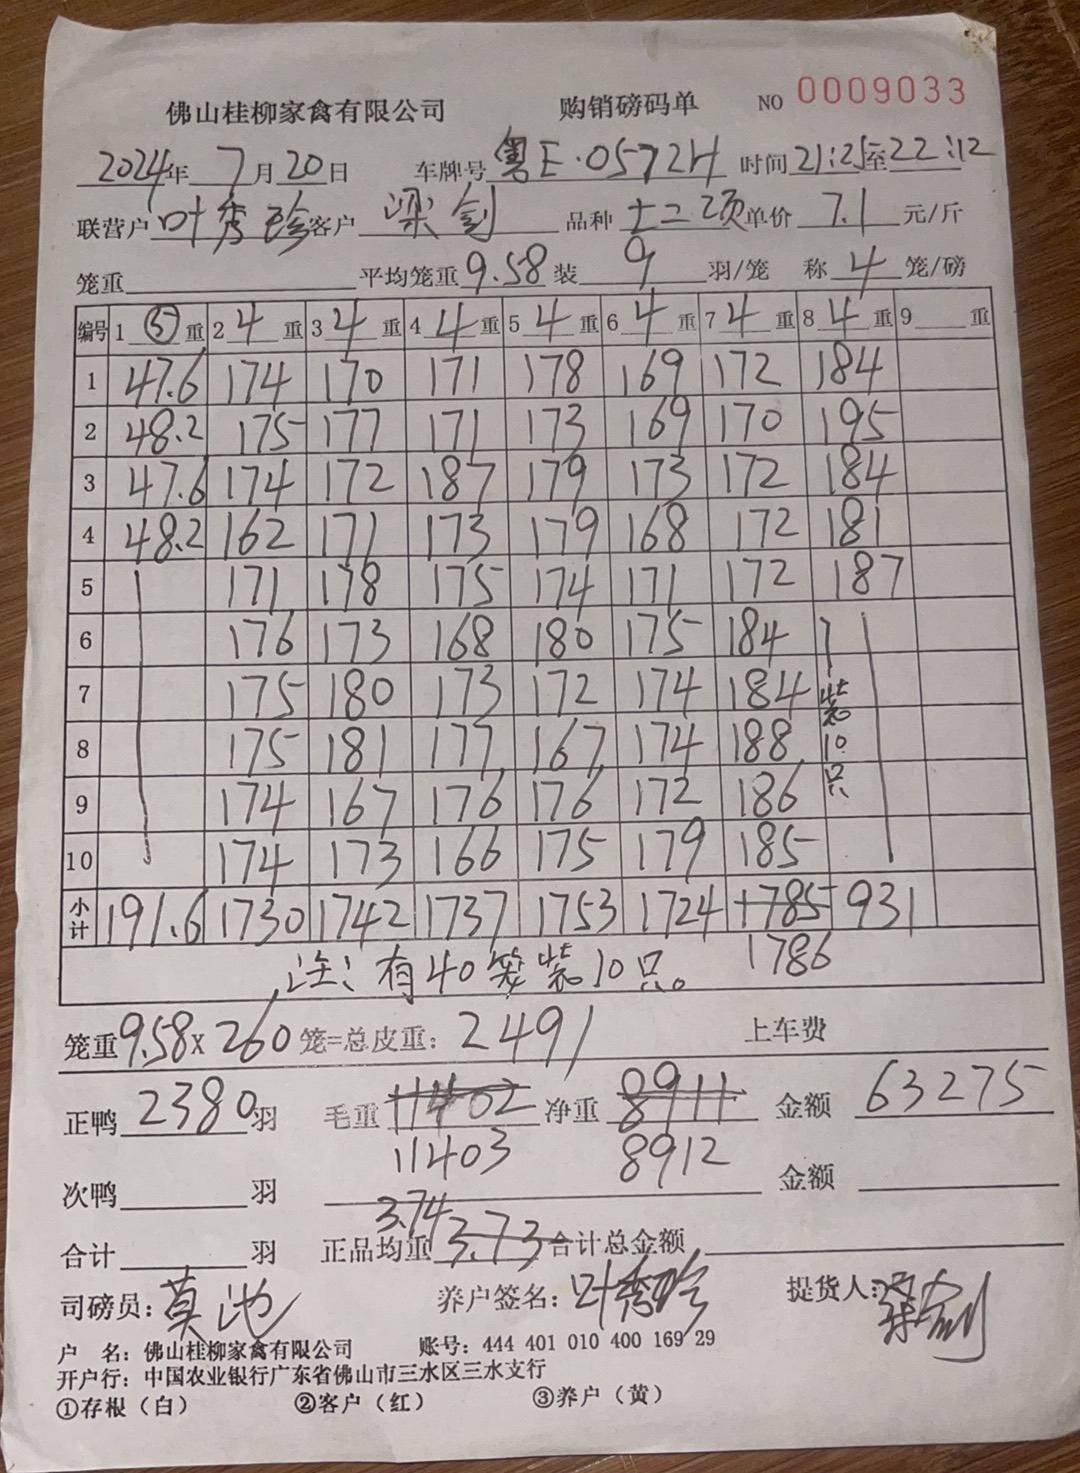 佛山桂柳家禽有限公司 购销磅码单 NO 0009033
2024年 7月20日 车牌号 粤E·0572H 时间21:25至22:12
联营户 叶秀珍 客户 梁剑 品种 土二项 单价 7.1 元/斤
笼重 平均笼重 9.58 装 9 羽/笼 称 4 笼/磅
编号 1 ⑤ 重 2 4 重 3 4 重 4 4 重 5 4 重 6 4 重 7 4 重 8 4 重 9 重
1 47.6 174 170 171 178 169 172 184
2 48.2 175 177 171 173 169 170 195
3 47.6 174 172 187 179 173 172 184
4 48.2 162 171 173 179 168 172 181
5 171 178 175 174 171 172 187
6 176 173 168 180 175 184
7 175 180 173 172 174 184 装
8 175 181 177 167 174 188 10
9 174 167 176 176 172 186 只
10 174 173 166 175 179 185
小计 191.6 1730 1742 1737 1753 1724 1785 931
注：有40笼装10只。 1786
笼重 9.58 x 260 笼=总皮重： 2491 上车费
正鸭 2380 羽 毛重 11402 净重 8911 金额 63275
11403 8912
次鸭 羽 金额
3.74
合计 羽 正品均重 3.73 合计总金额
司磅员：莫池 养户签名：叶秀珍 提货人：梁剑
户 名：佛山桂柳家禽有限公司 账号：444 401 010 400 169 29
开户行：中国农业银行广东省佛山市三水区三水支行
①存根（白） ②客户（红） ③养户（黄）